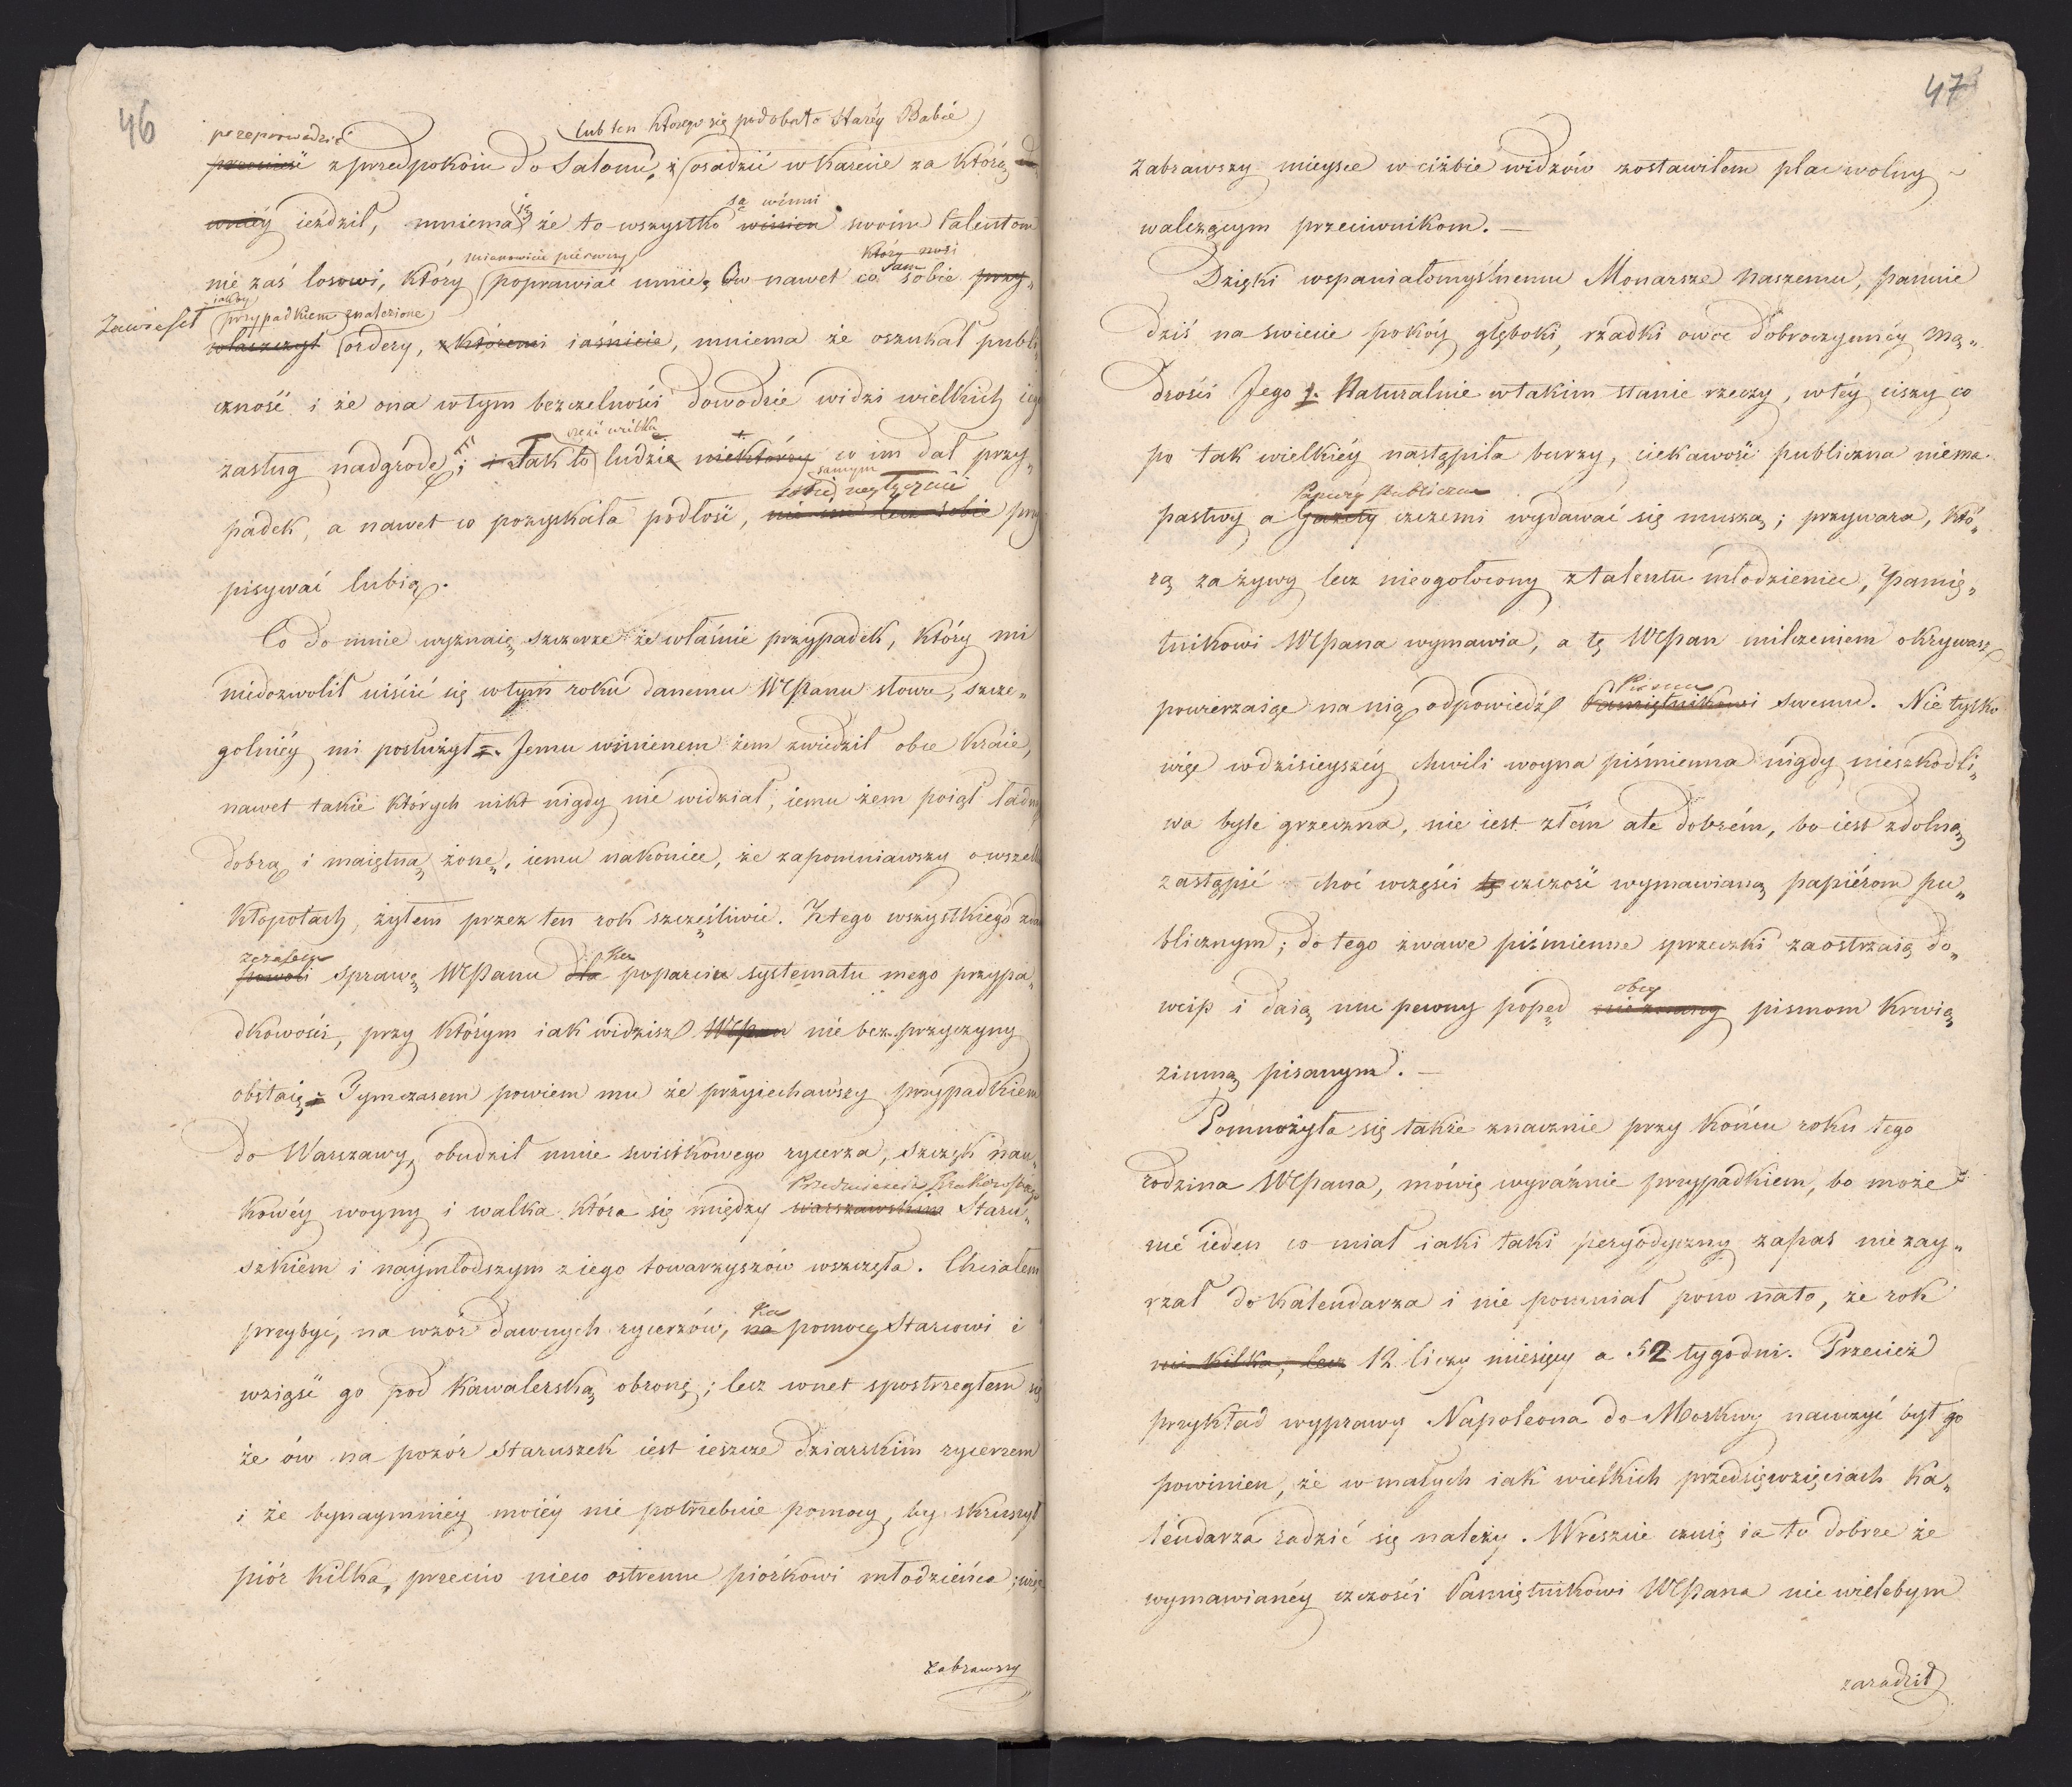 46
lub ten którego się podobało Staréy Babie
przeprowadzić
z przedpokoiu do Salonu, i osadzić w karecie za którą
ieździł, mniema że to wszystko winien swoim talentom
są winni
nie zaś losowi, który poprawiać umie, Ów nawet co sobie przy„
mianowicie piérwszy
który nosi
sam
Zawiesił
iakby
przypadkiem znalezione
właszczył ordery, z któremi iaśnieie, mniema że oszukał publi„
czność i że ona w tym bezczelności dowodzie widzi wielkich iego
zasług nadgrodę; i Tak to ludzie niektórzy co im dał przy„
samym
padek, a nawet co pozyskała podłość, nie im lecz sobie przy
pisywać lubią.
Co do mnie wyznaię szczerze że właśnie przypadek, który mi
niedozwolił uiścić się w tym roku danemu WPanu słowu, szcze„
gólniéy mi posłużył. Jemu winienem żem zwiedził obce kraie,
nawet takie których nikt nigdy nie widział, iemu żem poiął ładną
dobrą i maiętną żonę, iemu nakoniec, że zapomniawszy o wszelk
kłopotach, żyłem przez ten rok szczęśliwie. Z tego wszystkiego zdam
zczasem
ku
powoli sprawę WPanu dla poparcia systematu mego przypa„
dkowości, przy którym iak widzisz WPan nie bez przyczyny
obstaię. Tymczasem powiem mu że przyiechawszy przypadkiem
do Warszawy, obudził mnie świstkowego rycerza, szczęk nau„
Przedmieścia Krakowskiego
kowéy woyny i walka która się między warszawskim Staru„
szkiem i naymłodszym z iego towarzyszów wszczęła. Chciałem
ku
przybyć, na wzór dawnych rycerzów, na pomocy Starcowi i
wziąść go pod kawalerską obronę; lecz wnet spostrzegłem się
że ów na pozór staruszek iest ieszcze dziarskim rycerzem
i że bynaymniéy moiéy nie potrzebuie pomocy, by skruszył
piór kilka, przeciw nieco ostremu piórkowi młodzieńca; więc
Zabrawszy
47
Zabrawszy mieysce w ciżbie widzów zostawiłem plac wolny
walczącym przeciwnikom. —
Dzięki wspaniałomyślnemu Monarsze naszemu, panuie
dziś na świecie pokóy głęboki, rzadki owoc dobroczynnéy Mą„
drości Jego. Naturalnie w takim stanie rzeczy, w téy ciszy co
po tak wielkiéy nastąpiła burzy, ciekawość publiczna niema
Papiery Publiczne
pastwy a Gazety czczemi wydawać się muszą; przywara, któ„
rą za żywy lecz nieogołocony z talentu młodzieniec, Pamię„
tnikowi WPana wymawia, a tę WPan milczeniem okrywasz,
Pismu
powierzaiąc na nią odpowiedź Pamiętnikowi swemu. Nie tylko
więc w dzisieyszéy chwili woyna piśmienna nigdy nieszkodli„
wa byle grzeczna, nie iest złém ale dobrém, bo iest zdolną
zastąpić choć w części tę czczość wymawianą papiérom pu„
blicznym; do tego żwawe piśmienne sprzeczki zaostrzaią do„
obcy
wcip i daią mu pewny popęd nieznany pismom krwią
zimną pisanym. —
Pomnożyła się także znacznie przy końcu roku tego
rodzina WPana, mówię wyraźnie przypadkiem, bo może
nie ieden co miał iaki taki peryodyczny zapas nie zay„
rzał do Kalendarza i nie pomniał pono na to, że rok
nie kilka, lecz 12 liczy miesięcy a 52 tygodni. Przecież
przykład wyprawy Napoleona do Moskwy nauczyć był go
powinien, że w małych iak wielkich przedsięwzięciach Ka„
lendarza radzić się należy. Wreszcie czuię ia to dobrze że
wymawianéy czczości Pamiętnikowi WPana nie wielebym
zaradził